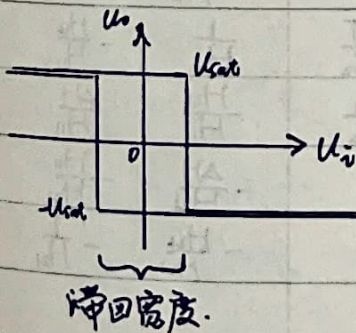 Uo
Usat
0
Ui
-Usat
滞回宽度.